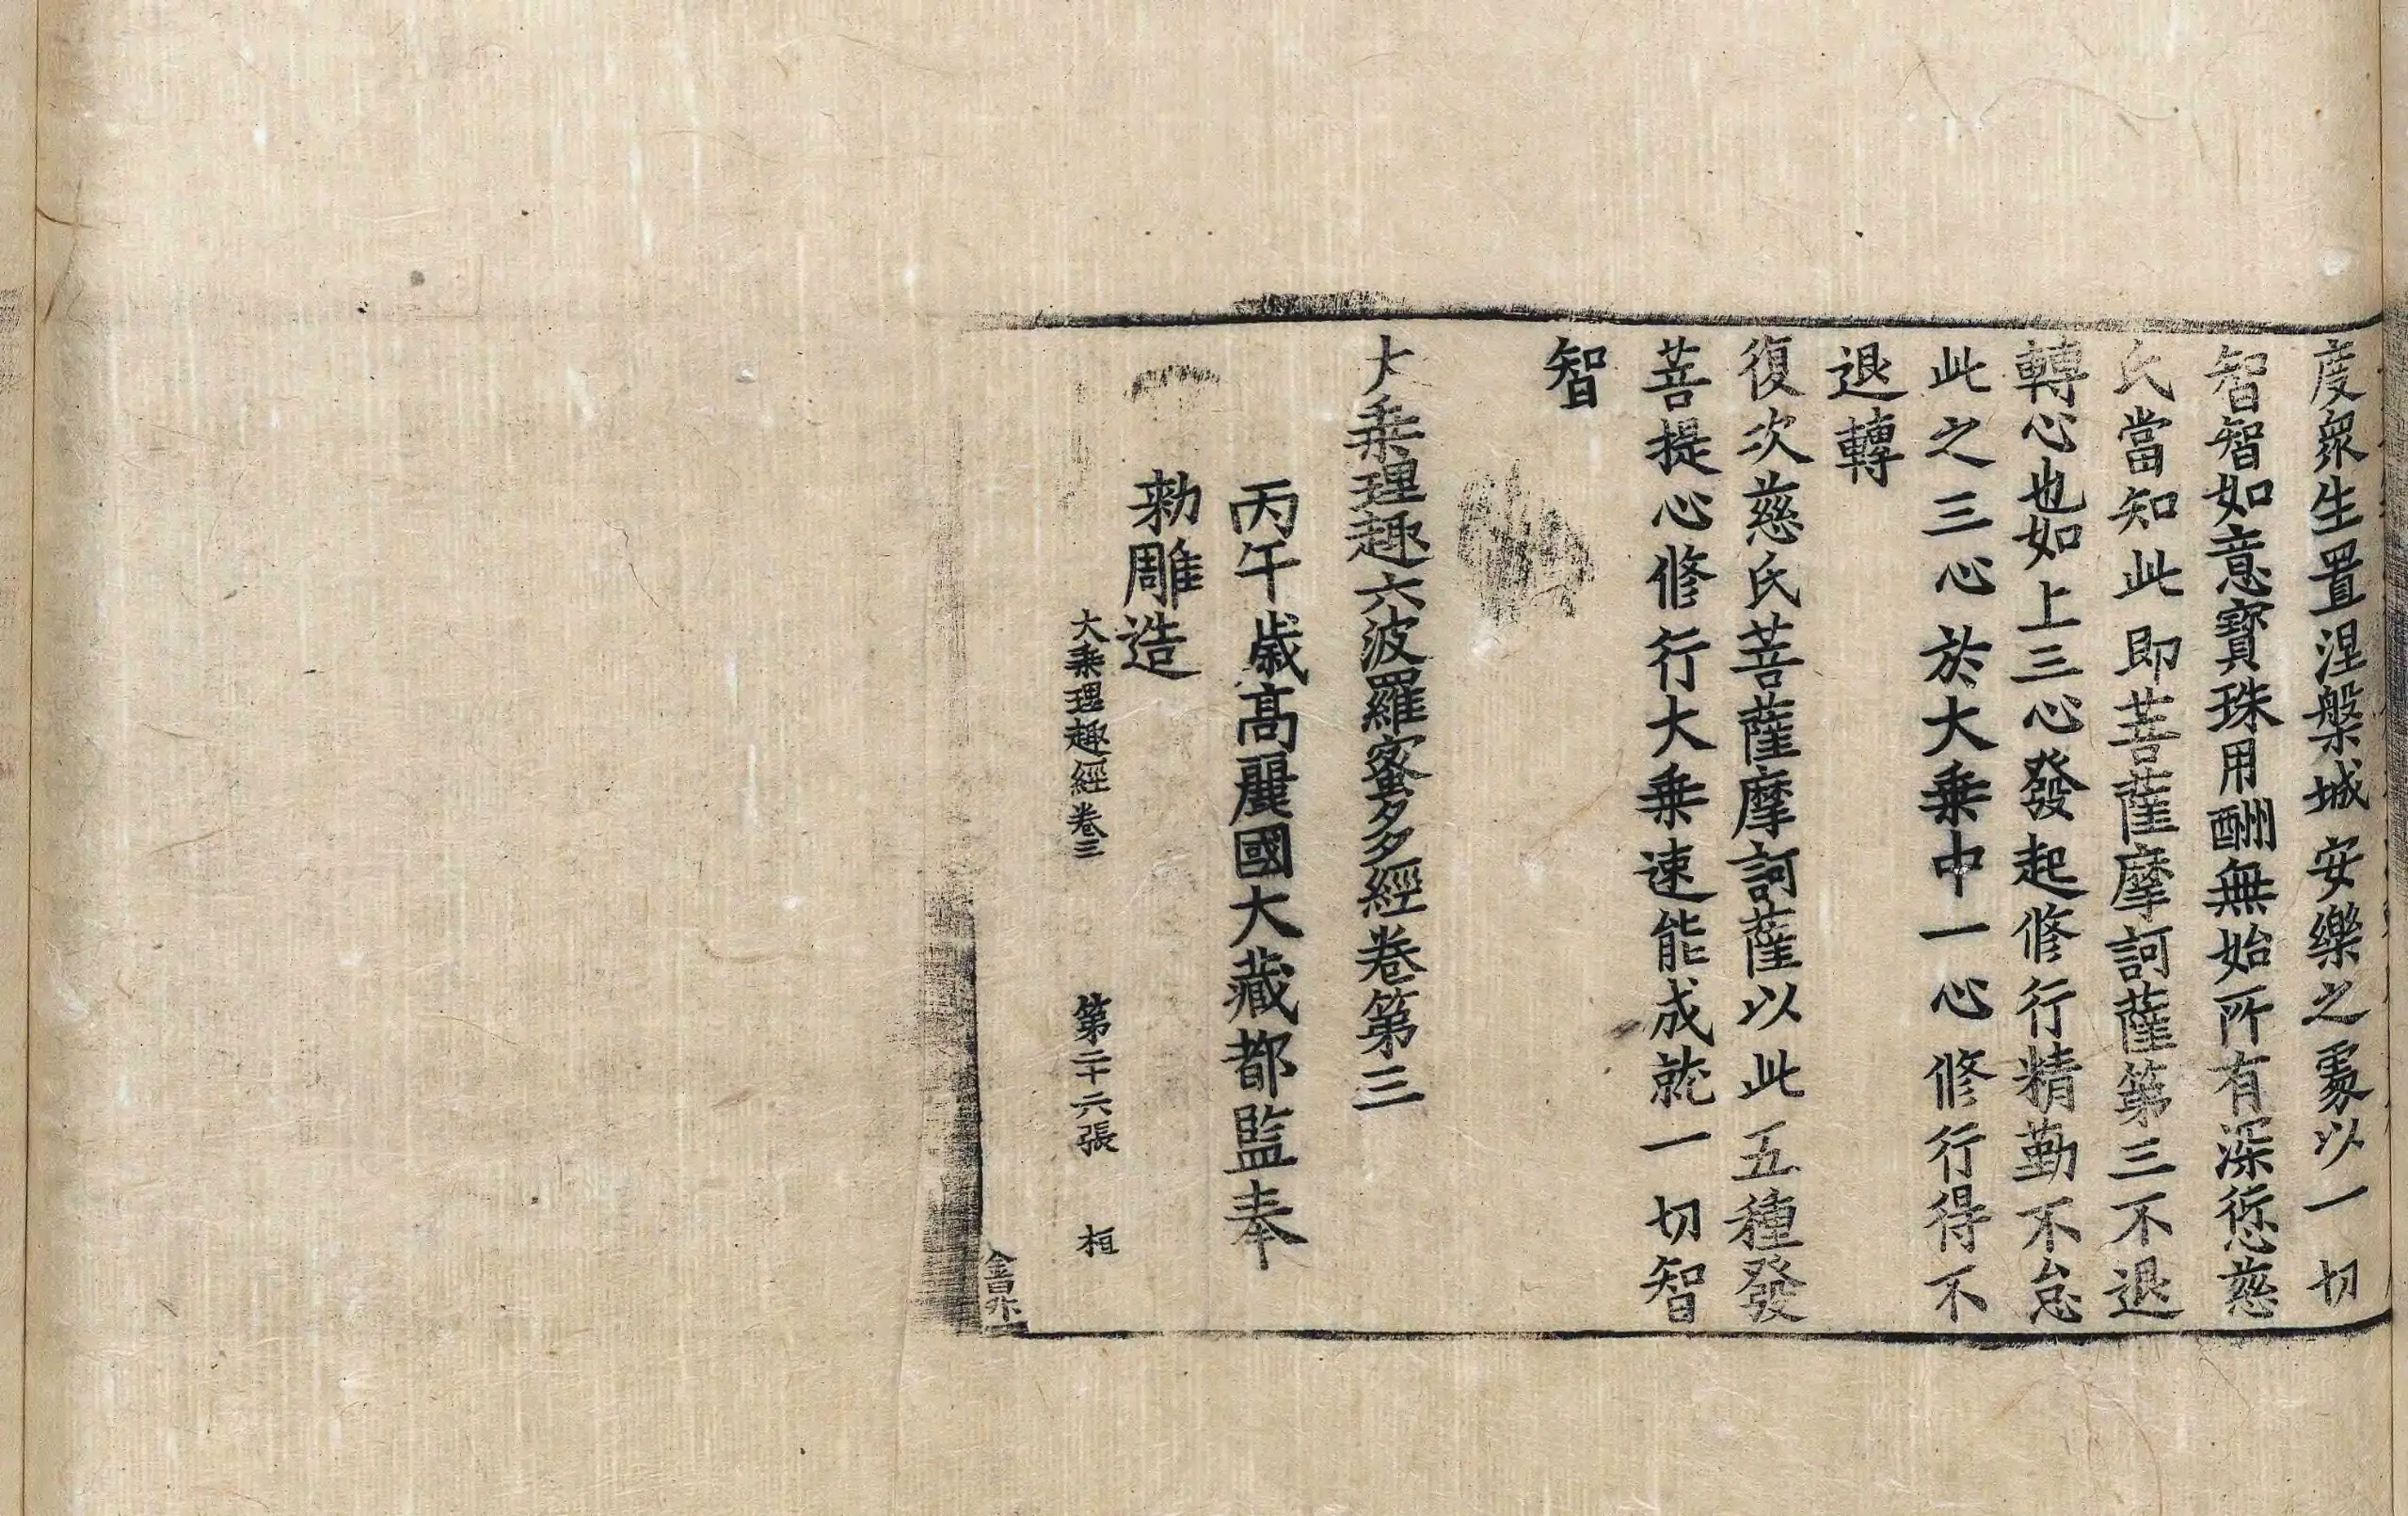 度衆生置涅槃城安樂之處以一切
智智如意寶珠用酬無始所有深愆慈
氏當知此即菩薩摩訶薩第三不退
轉心也如上三心發起修行精勤不怠
此之三心於大乗中一心修行得不
退轉
復次慈氏菩薩摩訶薩以此五種發
菩提心修行大乗速能成就一切智
智
大乗理趣六波羅蜜多經卷第三
丙午歳高麗國大藏都監奉
勑雕造
大乗理趣經卷三 第二十六張 桓